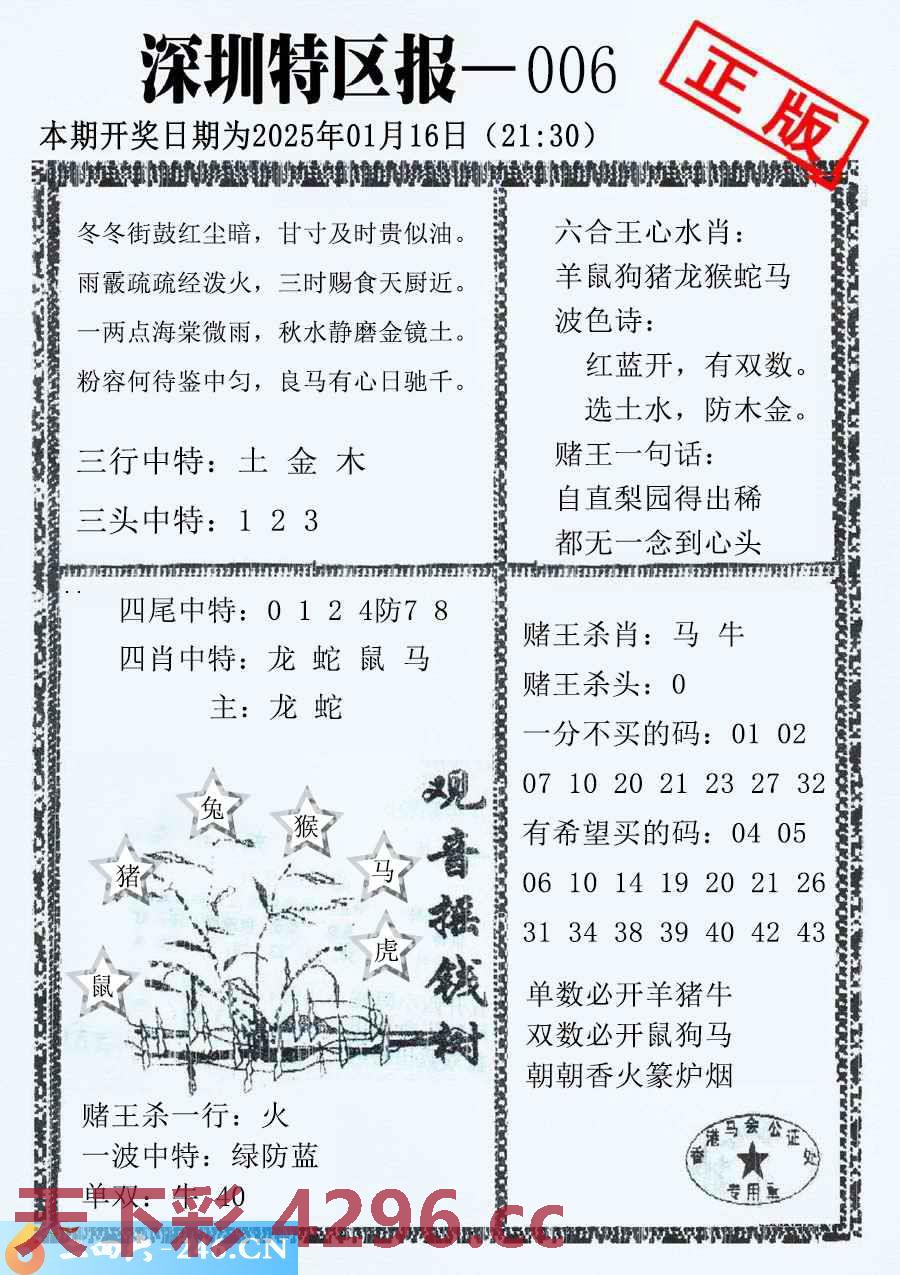 深圳特区报—006
正版
本期开奖日期为2025年01月16日（21:30）
冬冬街鼓红尘暗，甘寸及时贵似油。
雨霰疏疏经泼火，三时赐食天厨近。
一两点海棠微雨，秋水静磨金镜土。
粉容何待鉴中匀，良马有心日驰千。
三行中特：土 金 木
三头中特：1 2 3
六合王心水肖：
羊鼠狗猪龙猴蛇马
波色诗：
红蓝开，有双数。
选土水，防木金。
赌王一句话：
自直梨园得出稀
都无一念到心头
四尾中特：0 1 2 4防7 8
四肖中特：龙 蛇 鼠 马
主：龙 蛇
兔
猴
猪
马
虎
鼠
观音摇钱树
赌王杀一行：火
一波中特：绿防蓝
单双：牛 40
赌王杀肖：马 牛
赌王杀头：0
一分不买的码：01 02
07 10 20 21 23 27 32
有希望买的码：04 05
06 10 14 19 20 21 26
31 34 38 39 40 42 43
单数必开羊猪牛
双数必开鼠狗马
朝朝香火篆炉烟
香港马会公证处
专用章
天下彩 4296.cc
246.CN